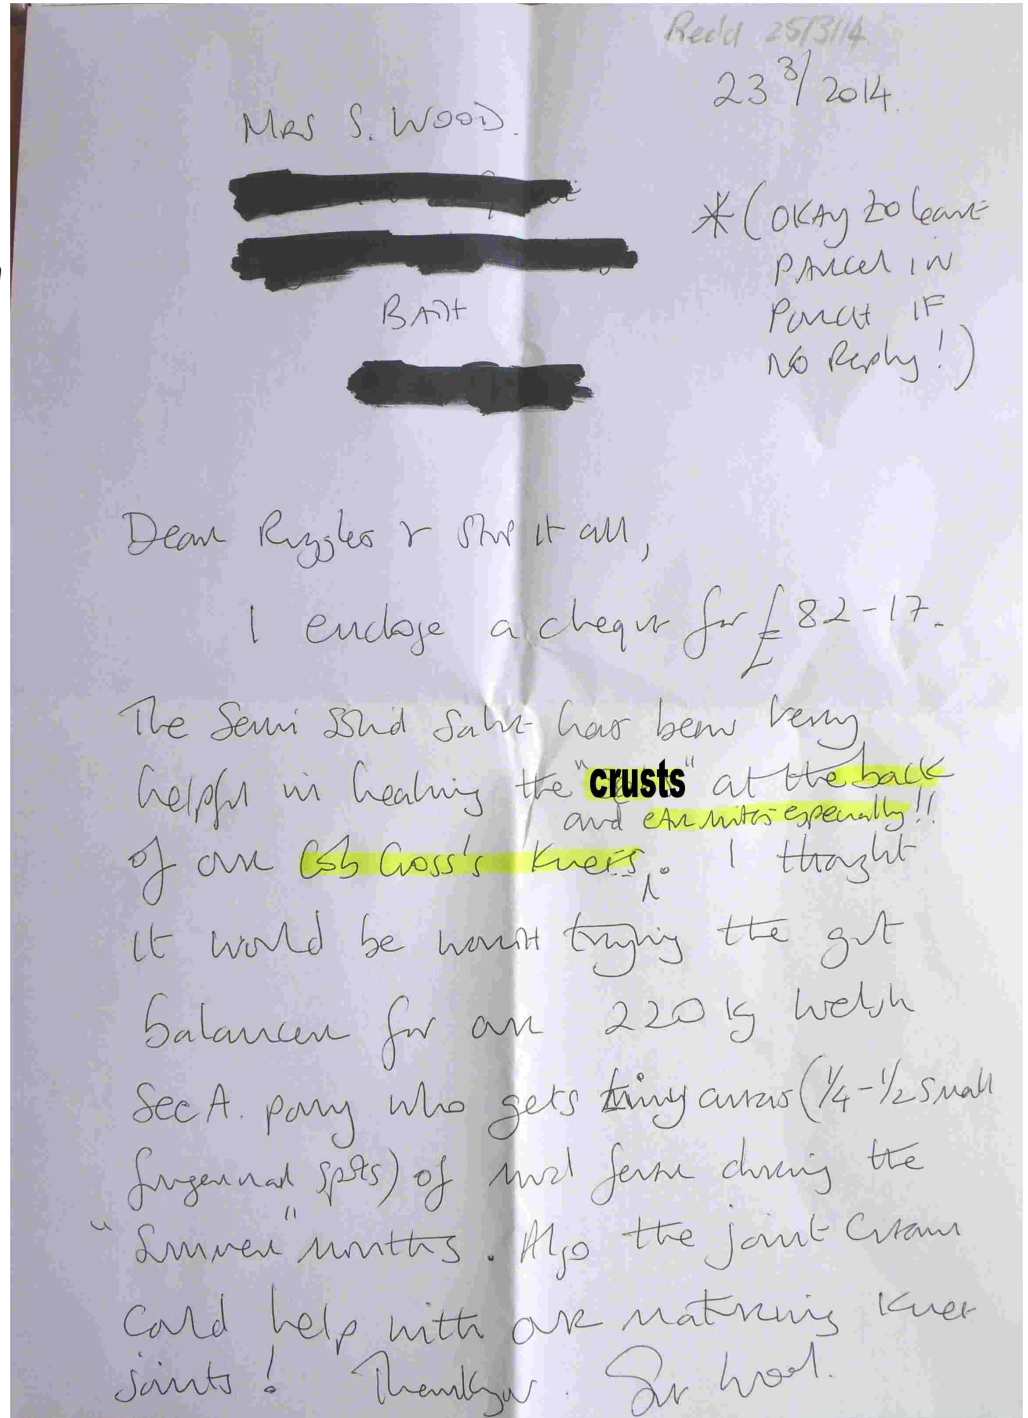 Recd 25/3/14
23 3/2014.
MRS S. WOOD.
BATH
*(OKAY to leave
PARCEL IN
PORCH IF
NO Reply!)
Dear Ruggles & Stop it all,
I enclose a cheque for £82-17.
The Semi Solid Salve has been very
helpful in healing the "crusts" at the back
and EAR mites especially!!
of our Cob Cross's knees. I thought
it would be worth trying the gut
balancer for our 220 kg Welsh
Sec A. pony who gets tiny areas (1/4-1/2 small
fingernail spots) of mud fever during the
"Summer" months. Also the joint Cream
could help with our maturing knee
joints! Thankyou. Sue Wood.